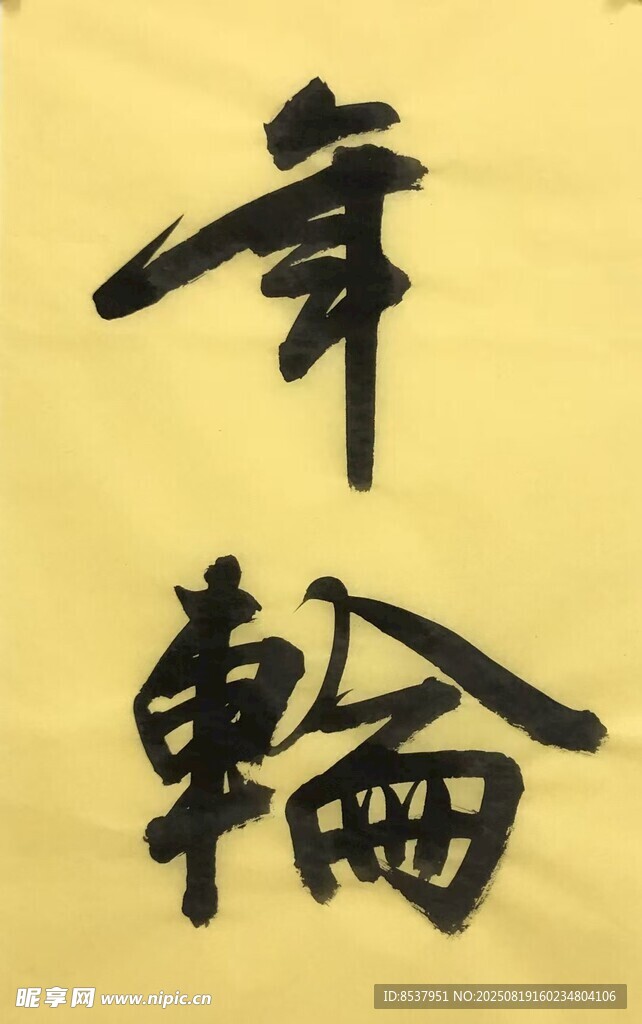 年
輪
昵享网 www.nipic.cn
ID:8537951 NO:20250819160234804106